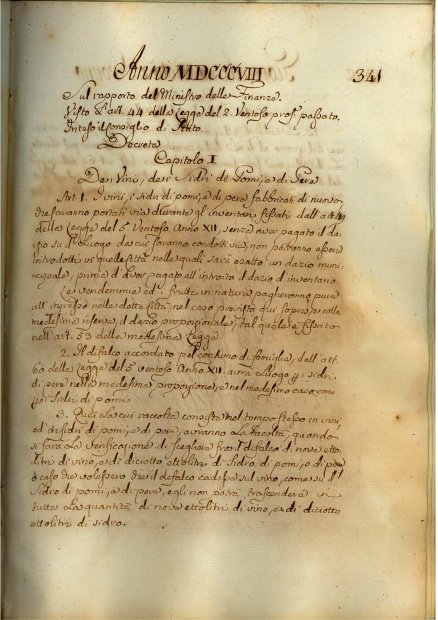 Anno MDCCCVIII 341
Sul rapporto del Ministro delle Finanze.
Visto l'art. 44 della Legge del 2. Ventoso pross. passato.
Inteso il Consiglio di Stato.
Decreta
Capitolo I
Dei Vini, dei Sidri di Pomi, e di Pera
Art. 1. I vini, i sidri di pomi, e di pera fabbricati di nuovo
che saranno portati via durante gl'inventari fissati dall'art. 49
della Legge del 5 Ventoso Anno XII, senza aver pagato il da-
zio sul Luogo da cui saranno condotti via, non potranno essere
introdotti in quelle Città nelle quali saxe esatto un dazio muni-
cipale, prima d'aver pagato all'introito il dazio d'inventario
Le vendemmie ed i frutti in natura pagheranno pure
all'ingresso nelle dette Città, nel caso previsto qui sopra, e colla
medesima riserva, il dazio proporzionale, tal quale è fissato
nell'art. 53 della medesima Legge
2. Il difalco accordato pel consumo di famiglia, dall'art.
60 della Legge del 5 ventoso Anno XII avrà Luogo p i sidri
di pera nella medesima proporzione, e nel medesimo caso, come
pei Sidri di pomi
3. Quei la cui raccolta consiste nel tempo stesso in vini
ed in sidri di pomi, e di pera, avranno la facoltà, quando
si farà la verificazione di scegliere fra il difalco di nove etto-
litri di vino, e di diciotto ettolitri di Sidro di pomi, o di pera
e caso che volessero che il defalco cadesse sul vino, come sul
Sidro di pomi, e di pera, egli non potrà trascendere in
tutto la quantità di nove ettolitri di vino, e di diciotto
ettolitri di sidro.